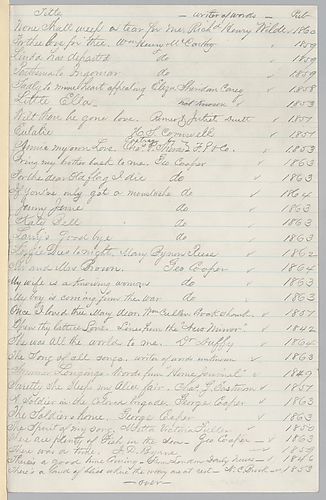 Title — writer of words — Pub
None Shall weep a tear for me. Richd. Henry Wilde 1860
I'm thee love for thee. Wm Henry McCarthy " 1859
Linda has departed do " 1859
do " 1859
Sadly to mine heart appealing Eliza Sheridan Carey " 1858
Little Ella not known " 1853
Wilt thou be gone love. Romeo & Juliet Duett " 1851
Eulalie H. S. Cornwell " 1851
Annie my own Love. Chas " 1853
Bring my brother back to me. Geo Cooper " 1863
For the dear Old Flag I die do " 1863
If you've only got a moustache do " 1864
Jenny June do " 1863
Katy Bell do " 1863
Larry's Good bye do " 1863
Lizzie Dies to night, Mary Byron Reese " 1862
Mr and Mrs Brown. Geo Cooper " 1864
My wife is a knowing woman do " 1863
My boy is coming from the war do " 1863
Once I loved thee Mary dear. Wm Cullen Crookshank " 1851
Open thy lattice Love. Lines from the "New Mirror" " 1842
She was All the world to me. Dr Duffy " 1864
The Song of all songs. writer of words unknown " 1863
Summer Longings. Words from "Home Journal" " 1849
Chas G. Eastman " 1851
A Soldier in the Colored brigade George Cooper 1863
The Soldier's home. George Cooper 1863
The Spirit of my song. Metta Victoria Fuller " 1850
There are plenty of Fish in the sea — Geo Cooper — " 1863
There was a time. J. D. Byrne — 1863
There's a good time coming — from London Daily News — " 1846
There's a land of
— over —